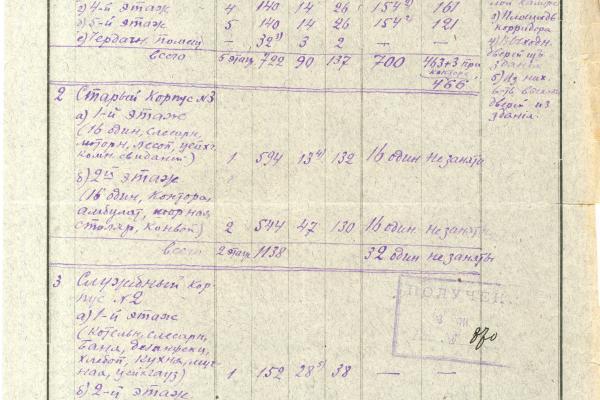 г) 4-й этаж 4 140 14 26 154²⁾ 161
д) 5-й этаж 5 140 14 26 154²⁾ 121
е) Чердачн. помещ. — 32³⁾ 3 2 — —
всего 5 этаж. 722 90 137 700 463+3 при конторе
466
3) Площадь
корридора
дверей из
здания
5) Из них
дверей из
здания.
2 Старый Корпус №3
а) 1-й этаж
(16 один, слесарн,
моторн, лесоп, цейхг.
комн. свиданий) 1 594 13⁴⁾ 132 16 один не занята
б) 2й этаж
(16 один, Контора,
амбулат,
столяр, Конвой) 2 544 47 130 16 один не занята
всего 2 этаж. 1138 32 один не заняты
3 Служебный Кор-
пус №2
а) 1-й этаж
(Котельн, слесарн,
Баня, дезинфекц,
хлебоп, Кухня,
цейхгауз) 1 152 28⁵⁾ 38 — —
б) 2-й этаж
ПОЛУЧЕН
870